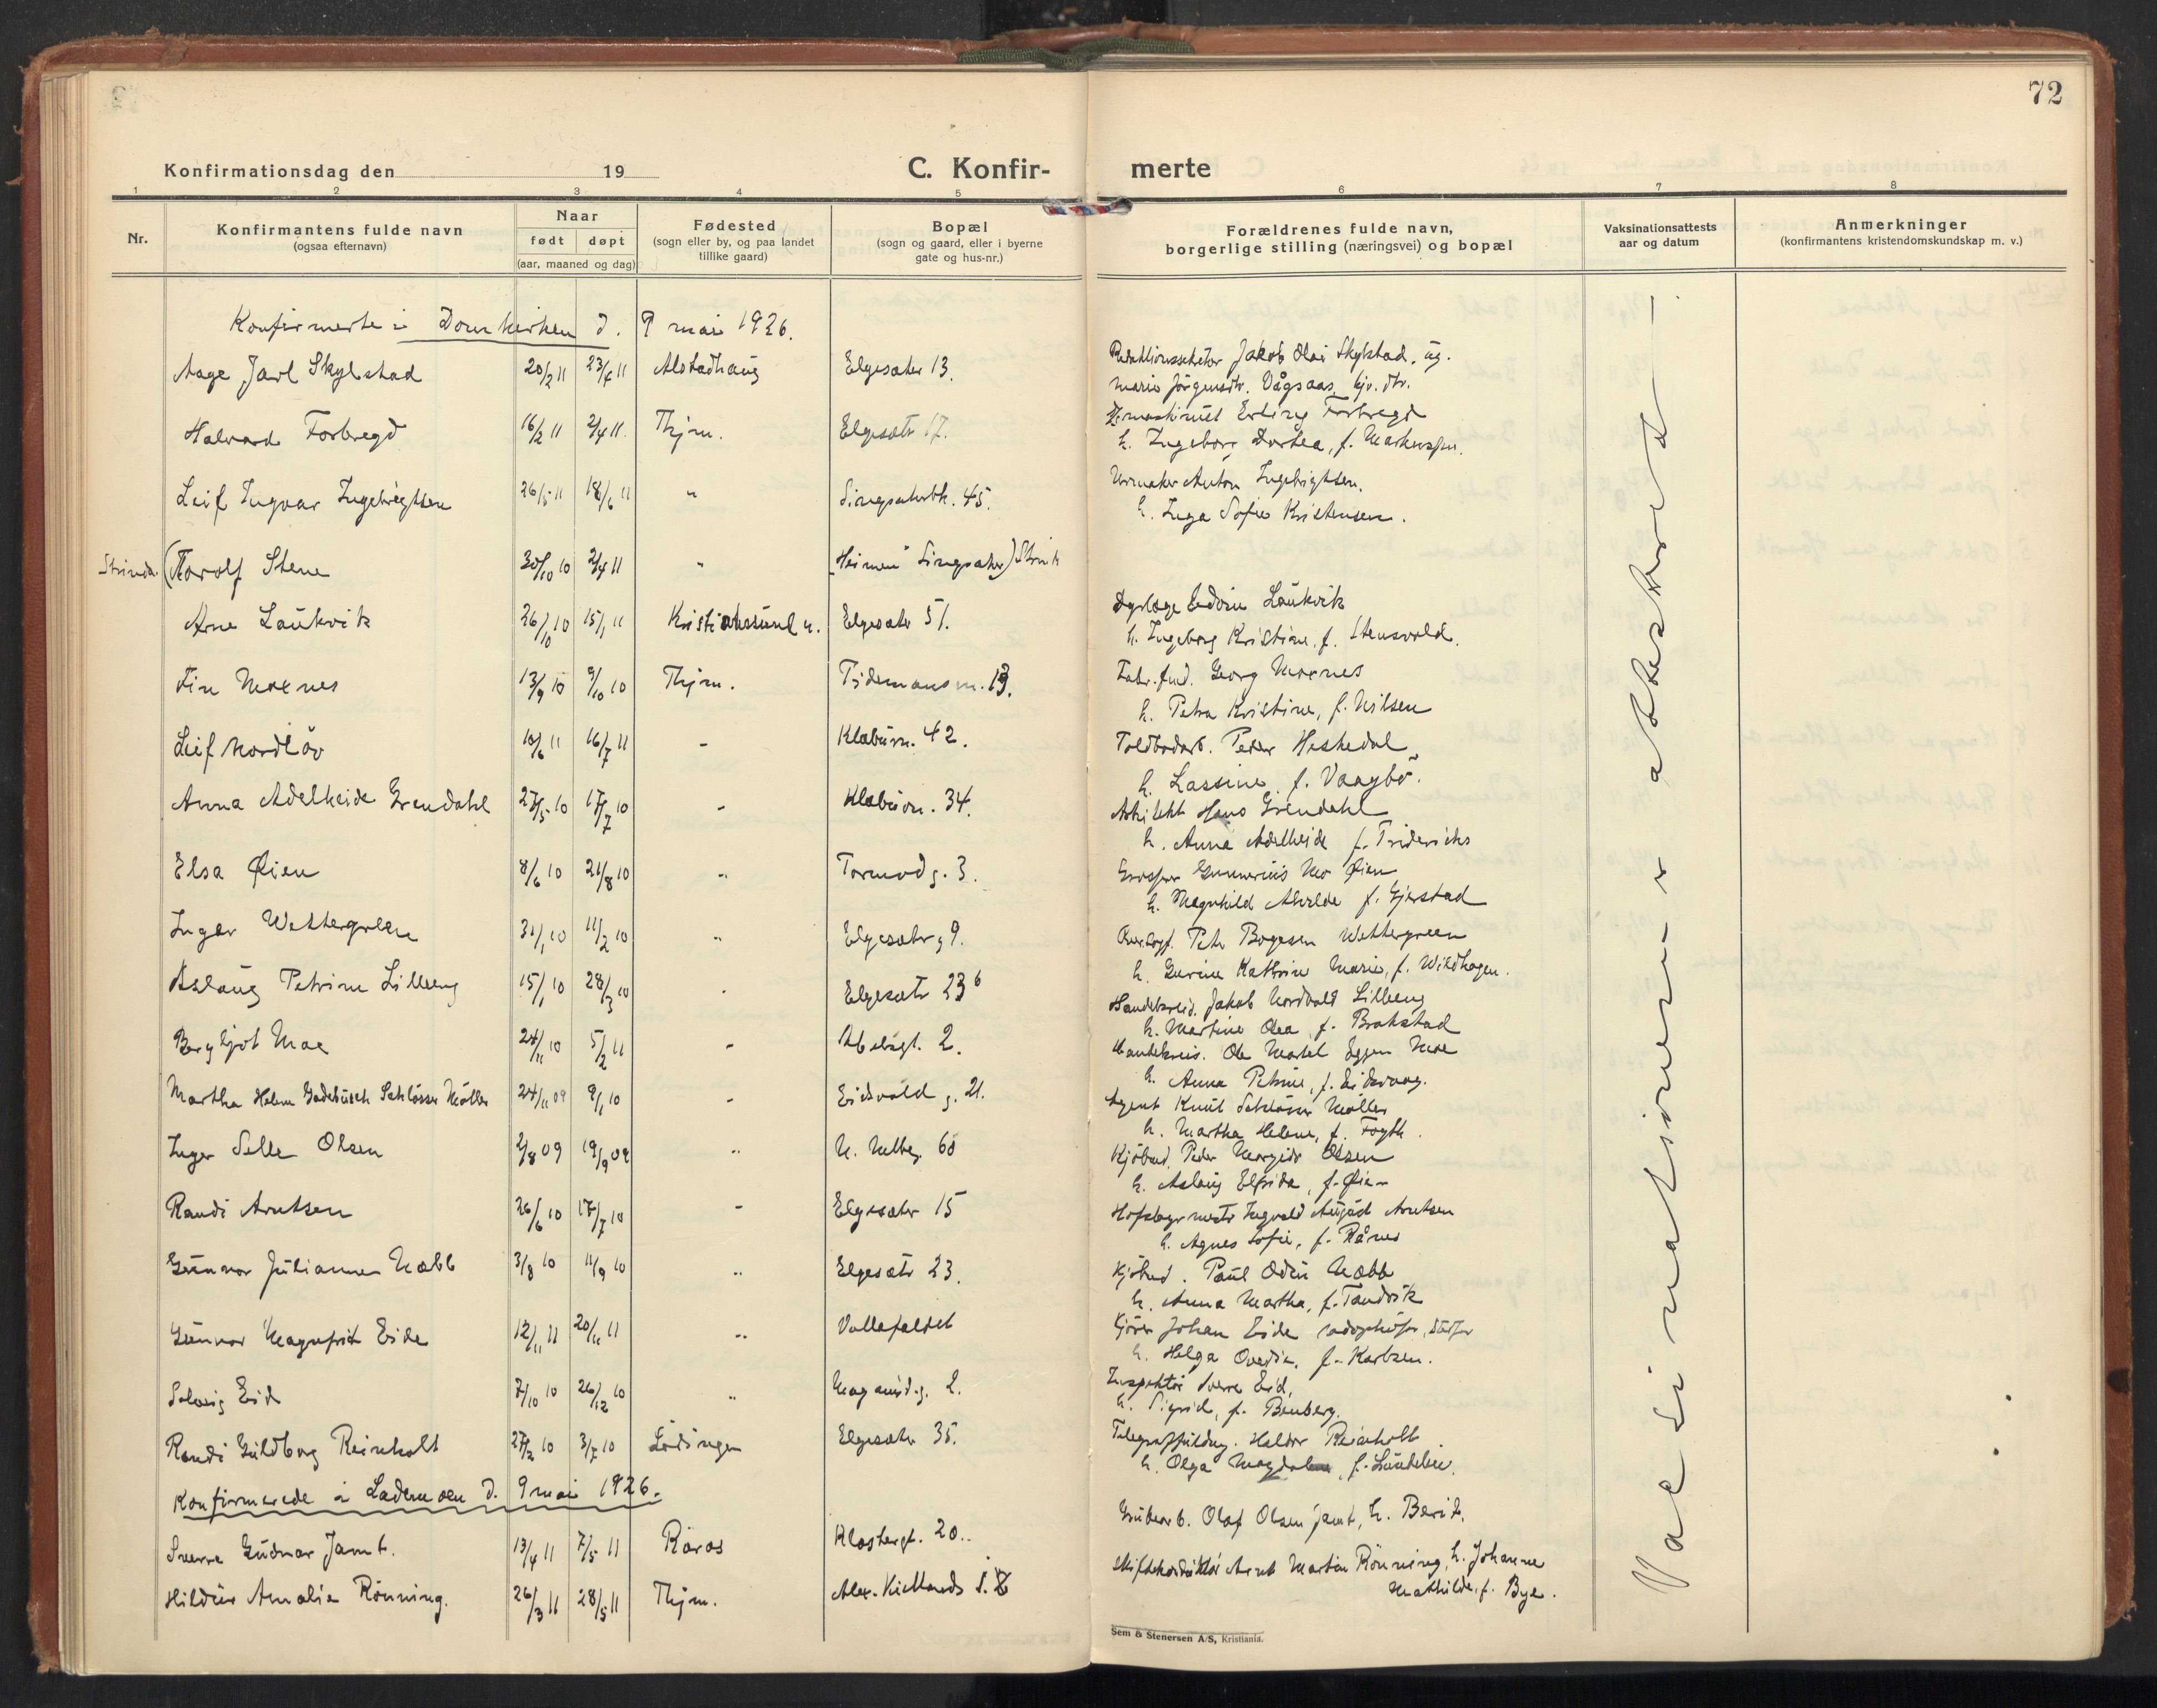 72
Konfirmationsdag den 19
C. Konfir-
merte
1 2 3 4 5 6 7 8
Nr.
Konfirmantens fulde navn
(ogsaa efternavn)
Naar
født døpt
(aar, maaned og dag)
Fødested
(sogn eller by, og paa landet
tillike gaard)
Bopæl
(sogn og gaard, eller i byerne
gate og hus-nr.)
Forældrenes fulde navn,
borgerlige stilling (næringsvei) og bopæl
Vaksinationsattests
aar og datum
Anmerkninger
(konfirmantens kristendomskundskap m. v.)
Konfirmerte i Domkirken d. 9 mai 1926.
Aage Jarl Skylstad 20/2 11 23/4 11 Alstadhaug Elgesæter 13.
Jakob Olai Skylstad, ug.
Marie Jörgensdtr. Vågsaas, gjv. dtr.
Halvard Forbregd 16/2 11 2/4 11. Thjm. Elgesætr 17.
Erling Forbregd
h. Ingeborg Dortea, f.
Leif Ingvar Ingebrigtsen 26/5 11 18/6 11 " Singsakerbk. 45.
Urmaker Anton Ingebrigtsen,
h. Inga Sofie Kristensen.
Strinda (Thorolf Stene 30/10 10 2/4 11 " "Heimen" Singsaker) Strink
Arne Laukvik 26/10 10 15/1 11 Kristianssund n. Elgesæter 51.
Dyrlæge Laukvik
h. Ingeborg Kristine, f. Stensvold.
Fin Moxnes 13/9 10 9/10 10 Thjm. Tidemansv. 13.
Georg Moxnes
h. Petra Kristine, f. Nilsen
Leif Nordlöv 10/6 11 16/7 11 - Klæbuvn. 42.
Toldbodarb. Peder Heskedal
h. Lassine, f. Vaagbö.
Anna Adelheide Grendahl 27/5 10 17/7 10 - Klæbuvn. 34.
Arkitekt Hans Grendahl
h. Anna Adelheide f. Friderichs
Elsa Øien 8/6 10 21/8 10 " Tormodg. 3.
Grosserer Gunnerius Mo Øien
h. Magnhild Alvilde f. Gjerstad
Inger Wettergreen 31/1 10 11/2 10 " Elgesæterg 9.
Petr Bogesen Wettergreen
h. Gurine Kathrine Marie, f. Wildhagen.
Aslaug Petrine Lilleeng 15/1 10 28/3 10 . Elgesætr 23 b
Handelsreis. Jakob Nordvald Lilleeng
h. Martine Olea f. Brakstad
Bergljot Moe 24/11 10 5/2 11 - Abelsgt. 2.
Handelsreis. Ole Martel Eggen Moe
h. Anna Petrine, f. Eidsvaag.
Martha Helene Gadebusch Schlösser Möller 24/11 09 9/1 10 - Eidsvold g. 21.
Agent Knut Schlösser Möller
h. Martha Helene, f. Foyth.
Inger Selle Olsen 2/8 09 19/9 09 " N. Ilelbg. 60
Kjöbmd. Peder Olsen
h. Aslaug Elfrida, f. Øien
Randi Arntsen 26/6 10 17/7 10 - Elgesæter 15
Ingvald August Arntsen
h. Agnes Sofie, f. Rånes
Gunvor Julianne Næbb 3/8 10 11/9 10 " Elgesætr 23.
Kjöbmd. Paul Odin Næbb
h. Anna Martha, f. Tandvik
Gunvor Magnfrid Eide 12/11 11 20/11 11 " Vollafaldet
Kjörer Johan Eide
h. Helga Ovedia, f. Karlsen.
Solveig Eid 7/10 10 26/12 10 " Magnusdg. 2.
Inspektör Sverre Eid,
h. Sigrid, f. Benberg.
Randi Guldborg Reinholt 27/2 10 3/7 10 Lödingen Elgesæter 35.
Haldor Reinholt
h. Olga Magdalene,
Konfirmerede i Lademoen d. 9 mai 1926.
Sverre Gudmar Jamt. 13/4 11 7/5 11 Röros Klostergt. 20.
Grubearb. Olaf Olsen Jamt, h. Berit.
Hildur Amalie Rönning. 26/3 11 28/5 11 Thjm. Alex. Kiellands
Arnt Martin Rönning, h. Johanne
Mathilde, f. Bye.
Vaccinationener attesteret
Sem & Stenersen A/S, Kristiania.